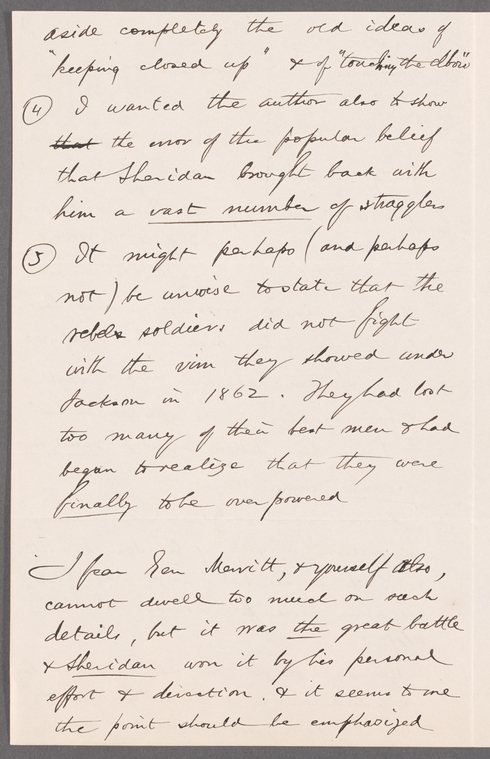 aside completely the old ideas of
"keeping closed up" & of "touching the elbow"
④ I wanted the author also to show
that the error of the popular belief
that Sheridan brought back with
him a vast number of stragglers
⑤ It might perhaps (and perhaps
not) be unwise to state that the
rebel soldiers did not fight
with the vim they showed under
Jackson in 1862. They had lost
too many of their best men & had
begun to realize that they were
finally to be overpowered
I fear Gen Merritt, & yourself also,
cannot dwell too much on such
details, but it was the great battle
& Sheridan won it by his personal
effort & direction. & it seems to me
the point should be emphasized